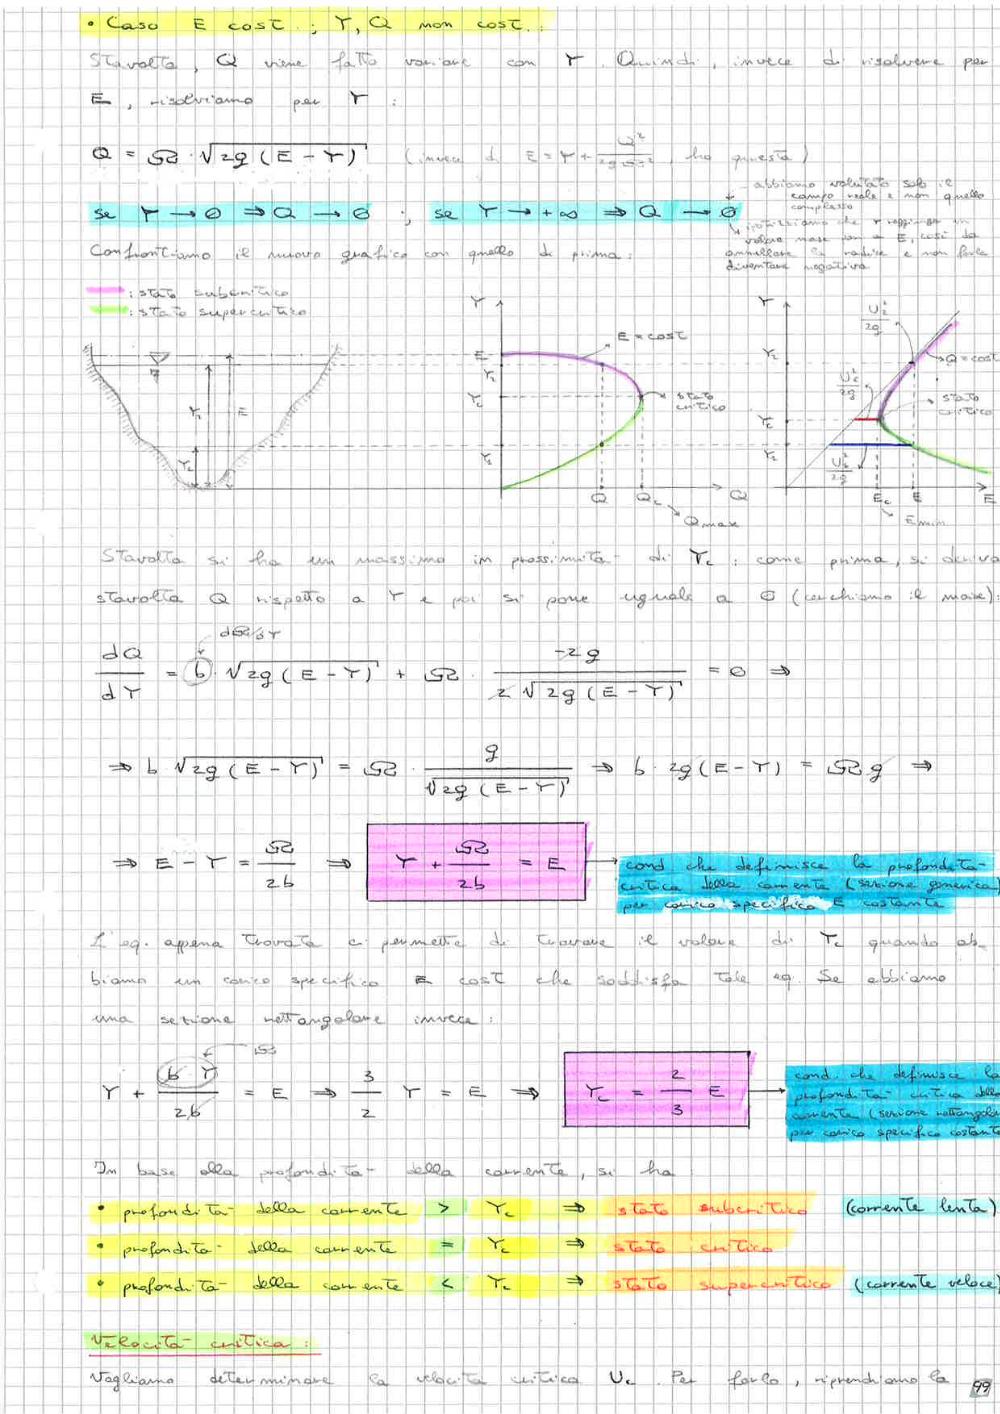 • Caso E cost. ; Y, Q non cost. :
Stavolta, Q viene fatto variare con Y. Quindi, invece di risolvere per
E, risolviamo per Y :
Q = Ω · √2g (E − Y) (invece di E = Y + Q²/2gΩ², ho questa)
se Y → 0 ⇒ Q → 0 ; se Y → +∞ ⇒ Q → 0
abbiamo valutato solo il
campo reale e non quello
complesso
ipotizziamo che Y raggiunga un
valore max pari a E, così da
annullare la radice e non farla
diventare negativa
Confrontiamo il nuovo grafico con quello di prima :
: stato subcritico
: stato supercritico
Y₁ Y₂ E
Y E Y₁ Y_c Y₂ E = cost stato critico Q Q_c Q
Q max
Y Y₁ Y_c Y₂ Q = cost stato critico E_c E E
E min
Stavolta si ha un massimo in prossimità di Y_c : come prima, si deriva
stavolta Q rispetto a Y e poi si pone uguale a 0 (cerchiamo il max):
dΩ/dY
dQ/dY = b · √2g (E − Y) + Ω · −2g / 2 √2g (E − Y) = 0 ⇒
⇒ b √2g (E − Y) = Ω · g / √2g (E − Y) ⇒ b · 2g (E − Y) = Ω g ⇒
⇒ E − Y = Ω/2b ⇒ Y + Ω/2b = E
cond che definisce la profondità
critica della corrente (sezione generica)
per carico specifico E costante
L'eq. appena trovata ci permette di trovare il valore di Y_c quando ab-
biamo un carico specifico E cost che soddisfa tale eq. Se abbiamo
una sezione rettangolare invece :
Ω
Y + b Y/2b = E ⇒ 3/2 Y = E ⇒ Y_c = 2/3 E
cond. che definisce la
profondità critica della
corrente (sezione rettangola
per carico specifico costante
In base alla profondità della corrente, si ha :
• profondità della corrente > Y_c ⇒ stato subcritico (corrente lenta)
• profondità della corrente = Y_c ⇒ stato critico
• profondità della corrente < Y_c ⇒ stato supercritico (corrente veloce)
Velocità critica :
Vogliamo determinare la velocità critica U_c. Per farlo, riprendiamo la
99